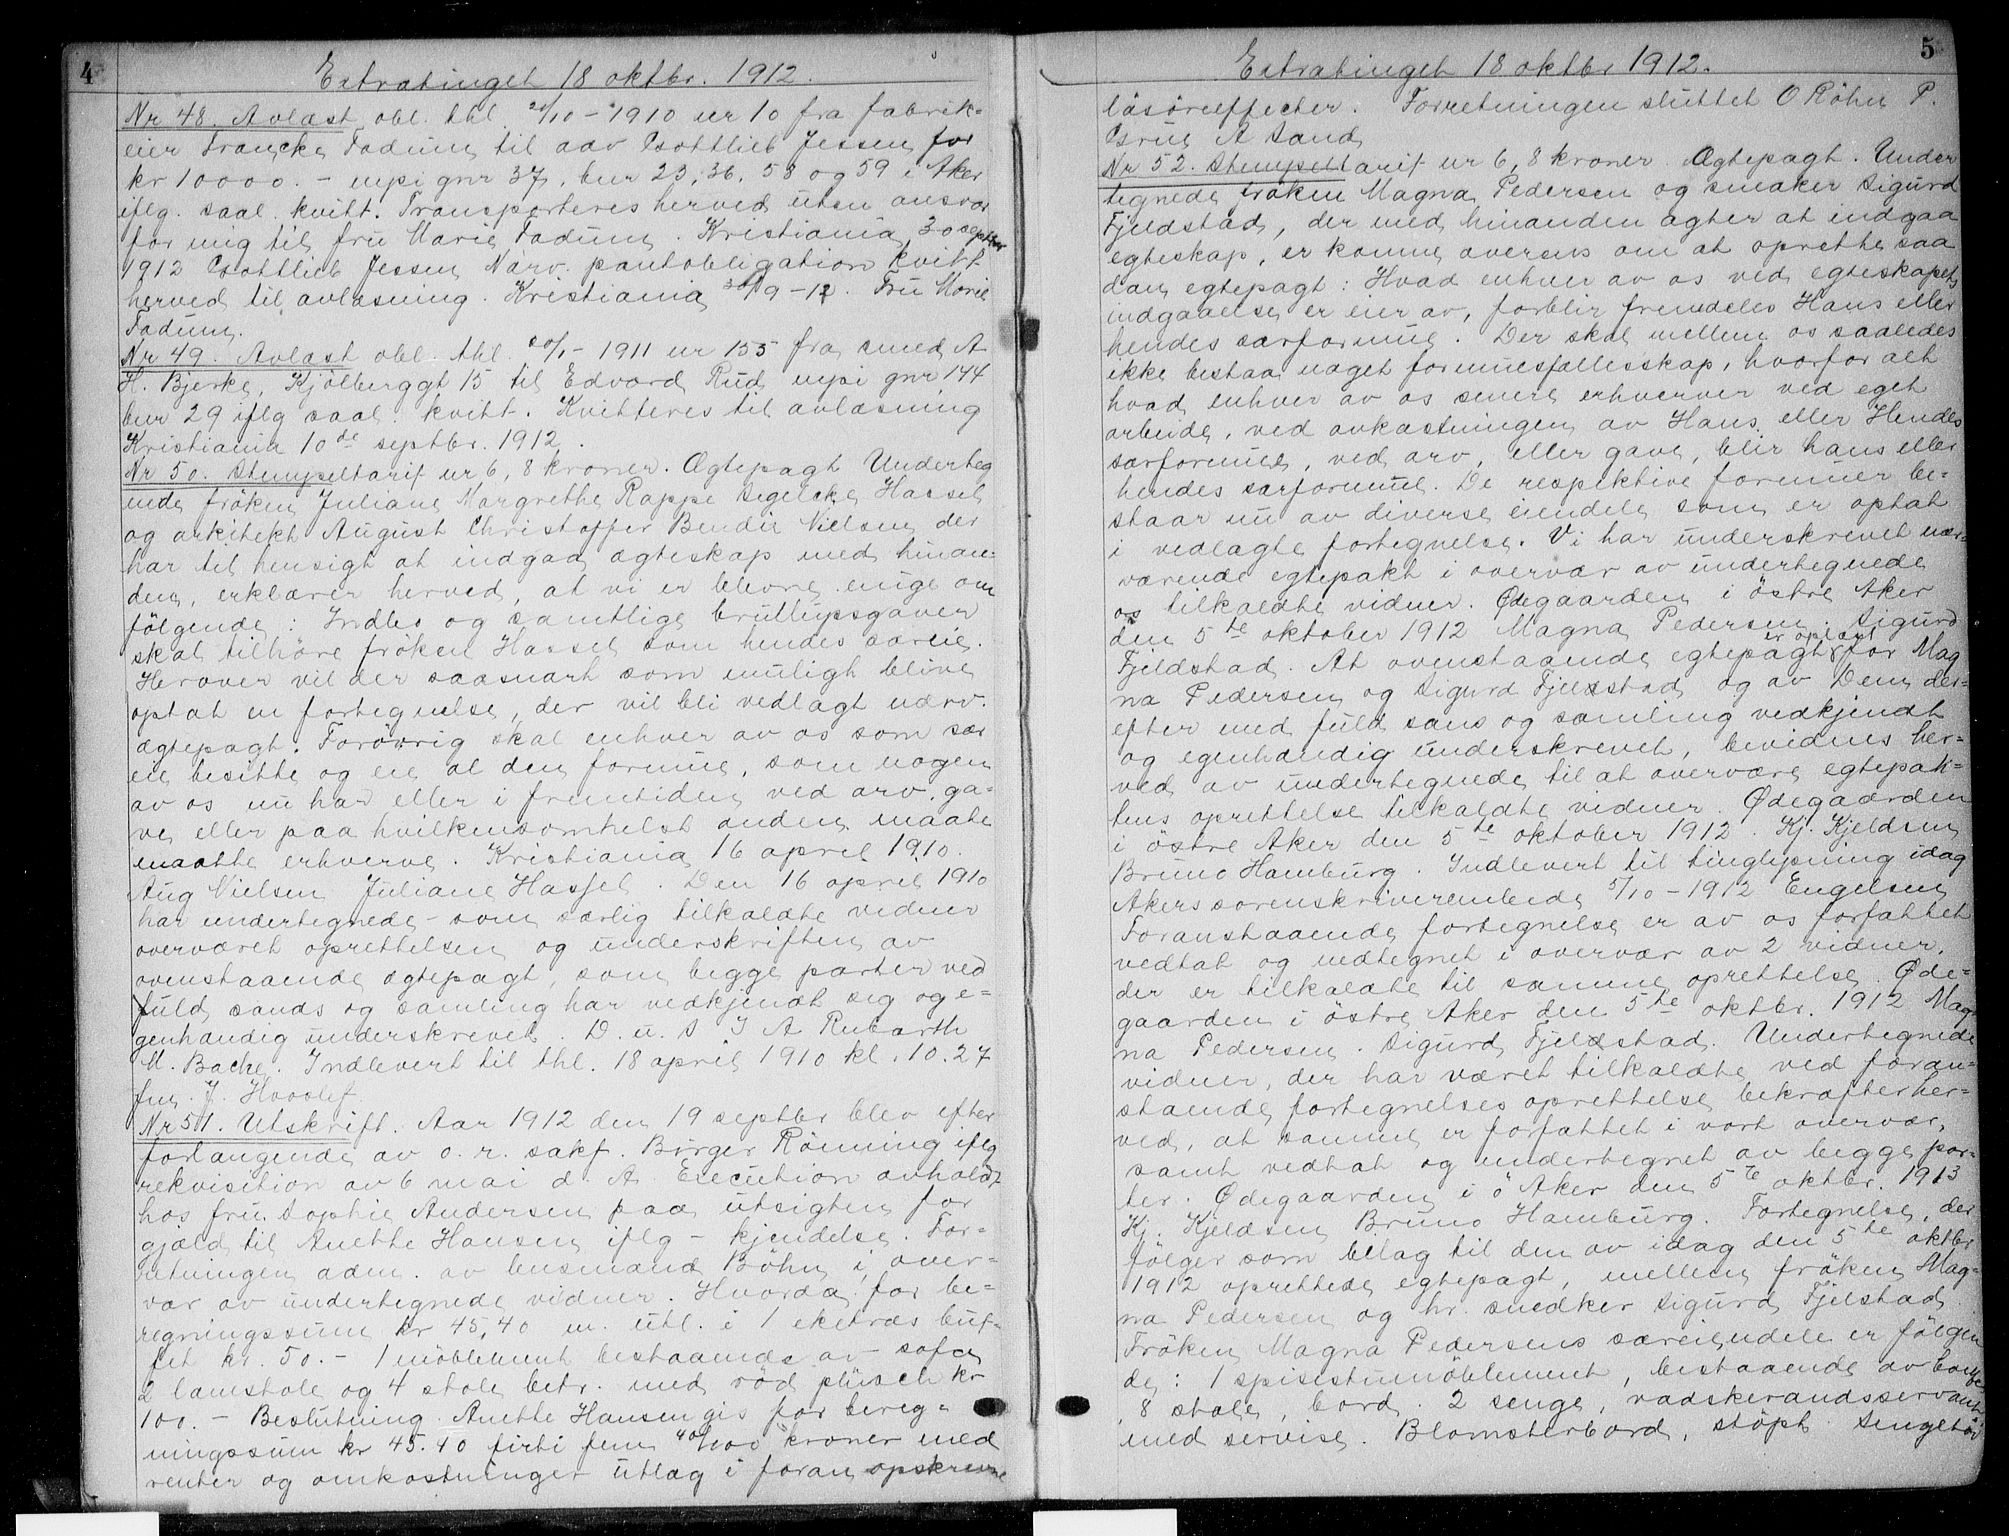 4
Extratinget 18 oktbr. 1912.
Nr 48. Avlæst obl. thl. 20/10 - 1910 nr 10 fra fabrik=
eier Francke Fadum til adv Gottlieb Jessen for
kr 10000. - mpi gnr 37, bnr 23, 36, 58 og 59 i Aker
iflg. saal. kvitt. Transporteres herved uten ansvar
for mig til fru Marie Fadum. Kristiania 30 septbr
1912 Gottlieb Jessen Nærv. pantobligation kvitt
herved til avlæsning. Kristiania 30/9-12. Fru Marie
Fadum.
Nr 49. Avlæst obl. thl. 20/1 - 1911 nr 155 fra smed A
H. Bjerke, Kjölberggt 15 til Edvard Rud mpi gnr 144
bnr 29 iflg saal. kvitt. Kvitteres til avlæsning
Kristiania 10de septbr. 1912.
Nr 50. Stempeltarif nr 6, 8 kroner. Ægtepagt Underteg
nede fröken Juliane Margrethe Rappe Segelcke Hassel
og arkitekt August Christoffer Bendix Nielsen der
har til hensigt at indgaa ægteskap med hinan=
den, erklærer herved, at vi er blevne enige om
fölgende: Indbo og samtlige bryllupsgaver
skal tilhöre fröken Hassel som hendes særeie.
Herover vil der saasnart som muligt blive
optat en fortegnelse, der vil bli vedlagt nærv.
ægtepagt. Forövrig skal enhver av os som sær
eie besitte og eie al den formue, som nogen
av os nu har eller i fremtiden ved arv, ga=
ve eller paa hvilkensomhelst anden maate
maatte erhverve. Kristiania 16 april 1910.
Aug Nielsen Juliane Hassel. Den 16 april 1910
har undertegnede - som særlig tilkaldte vidner
overværet oprettelsen og underskriften av
ovenstaaende ægtepagt, som begge parter ved
fuld sands og samling har vedkjendt sig og e=
genhændig underskrevet. D. u. S J A Rubarth
M. Backe. Indlevert til thl. 18 april 1910 kl. 10.27
fm. J. Horslef
Nr 51. Utskrift. Aar 1912 den 19 septbr blev efter
forlangende av o. r. sakf. Birger Rönning iflg
rekvisition av 6 mai d. A. Execution avholdt
hos fru Sophie Andersen paa utsigten for
gjæld til Anette Hansen iflg - kjendelse. For=
retningen adm. av lensmand Böhn i over=
vær av undertegnede vidner. Hvorda for be=
regningssum kr 45,40 m. utl. i 1 eketræs buf=
fet kr. 50. - 1 möblement bestaaende av sofa
2 lænstole og 4 stole betr. med röd plüsch kr
100. - Beslutning. Anette Hansen gis for bereg=
ningssum kr 45.40 firti fem 40/100 kroner med
renter og omkostninger utlæg i foran opskrevne
5
Extratinget 18 oktbr 1912.
lösöreeffecter. Forretningen sluttet O Röhn P.
Grue A Sand
Nr 52. Stempeltarif nr 6, 8 kroner. Ægtepagt. Under
tegnede fröken Magna Pedersen og snæker Sigurd
Fjeldstad, der med hinanden agter at indgaa
egteskap, er komne overens om at oprette saa
dan egtepagt: Hvad enhver av os ved egteskapets
indgaaelse er eier av, forblir fremdeles Hans eller
hendes særformue. Der skal mellem os saaledes
ikke bestaa noget formuesfællesskap, hvorfor alt
hvad enhver av os senere erhverver ved eget
arbeide, ved avkastningen av Hans eller Hendes
særformue, ved arv, eller gave, blir hans eller
hendes særformue. De respektive formuer be=
staar nu av diverse eiendele som er optat
i vedlagte fortegnelse. Vi har underskrevet nær=
værende egtepakt i overvær av undertegnede
os tilkaldte vidner. Ødegaarden i östre Aker
den 5te oktober 1912 Magna Pedersen. Sigurd
Fjeldstad. At ovenstaaende egtepagt er oplæst for Mag
na Pedersen og Sigurd Fjeldstad og av Dem der=
efter med fuld sans og samling vedkjendt
og egenhændig underskrevet, bevidnes her=
ved av undertegnede til at overvære egtepak=
tens oprettelse tilkaldte vidner. Ødegaarden
i östre Aker den 5te oktober 1912. Kj. Kjeldsen
Bruno Hamburg. Indlevert til tinglysning idag
Akers sorenskriverembede 5/10 - 1912 Engelsen
Foranstaaende fortegnelse er av os forfattet
vedtat og undtegnet i overvær av 2 vidner,
der er tilkaldte til samme oprettelse. Øde=
gaarden i östre Aker den 5te oktbr. 1912 Mag
na Pedersen. Sigurd Fjeldstad. Undertegnede
vidner, der har været tilkaldte ved foran=
staaende fortegnelses oprettelse bekræfter her=
ved, at samme er forfattet i vort overvær,
samt vedtat og undertegnet av begge par=
ter. Ødegaarden i ö Aker den 5te oktbr. 1913
Kj. Kjeldsen Bruno Hamburg. Fortegnelse, der
fölger som bilag til den av idag den 5te oktbr
1912 oprettede egtepagt, mellem fröken Mag=
na Pedersen og hr. snedker Sigurd Fjelstad.
Fröken Magna Pedersens særeiendele er fölgen
de: 1 spisestumöblement, bestaaende av buffet
8 stole, bord. 2 senge, vadskerandsservant
med servise. Blomsterbord, stöpt. Sengetöi